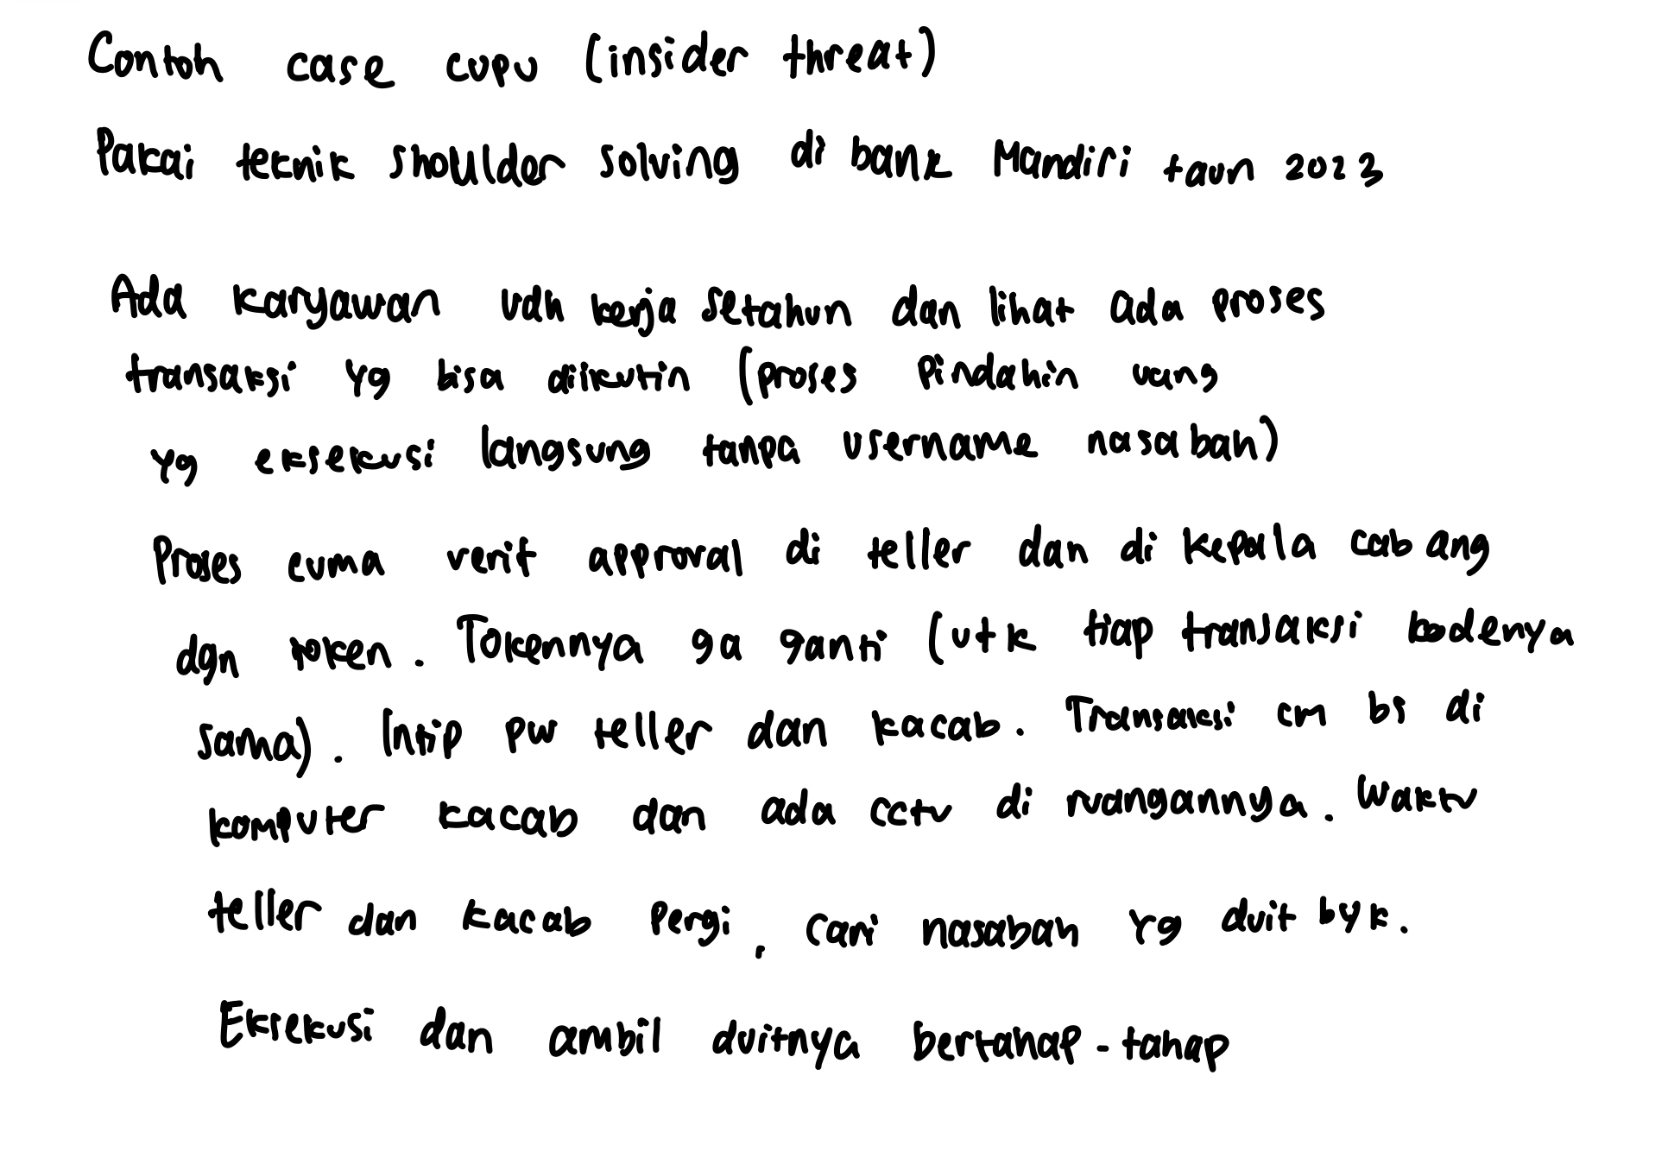 Contoh case cupu (insider threat)
Pakai teknik shoulder solving di bank Mandiri taun 2023
Ada karyawan udh kerja setahun dan lihat ada proses
transaksi yg bisa diikutin (proses pindahin uang
yg eksekusi langsung tanpa username nasabah)
Proses cuma verif approval di teller dan di kepala cabang
dgn token. Tokennya ga ganti (utk tiap transaksi kodenya
sama). Intip pw teller dan kacab. Transaksi cm bs di
komputer kacab dan ada cctv di ruangannya. Waktu
teller dan kacab pergi, cari nasabah yg duit byk.
Eksekusi dan ambil duitnya bertahap-tahap